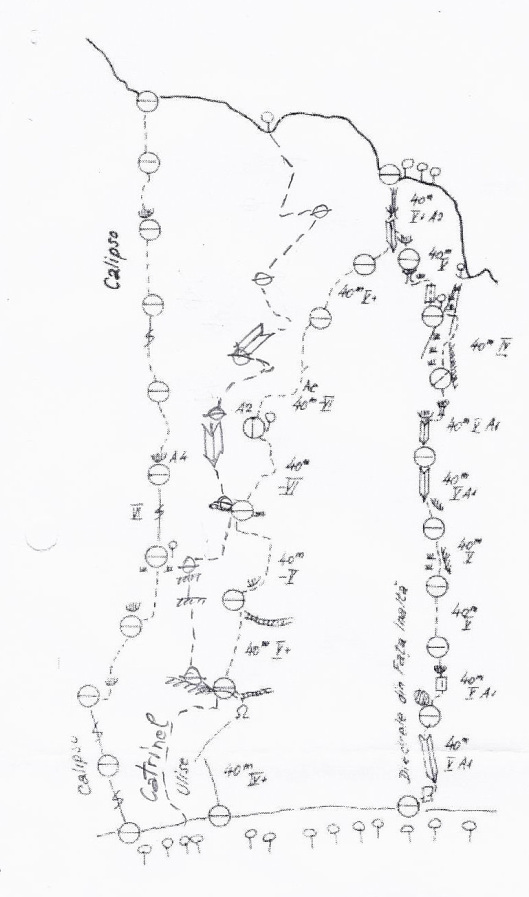 Calipso
40ᵐ
V+ A2
40ᵐ
V
40ᵐ V+
40ᵐ IV
40ᵐ VI
A2
40ᵐ V A1
A4
VI
40ᵐ
VI
40ᵐ
V A1
40ᵐ
V
40ᵐ
V
40ᵐ V+
40ᵐ
V
40ᵐ
V A1
Directele din Fața Înaltă
Calipso
Catrinel
Ulise
40ᵐ
IV+
40ᵐ
V A1